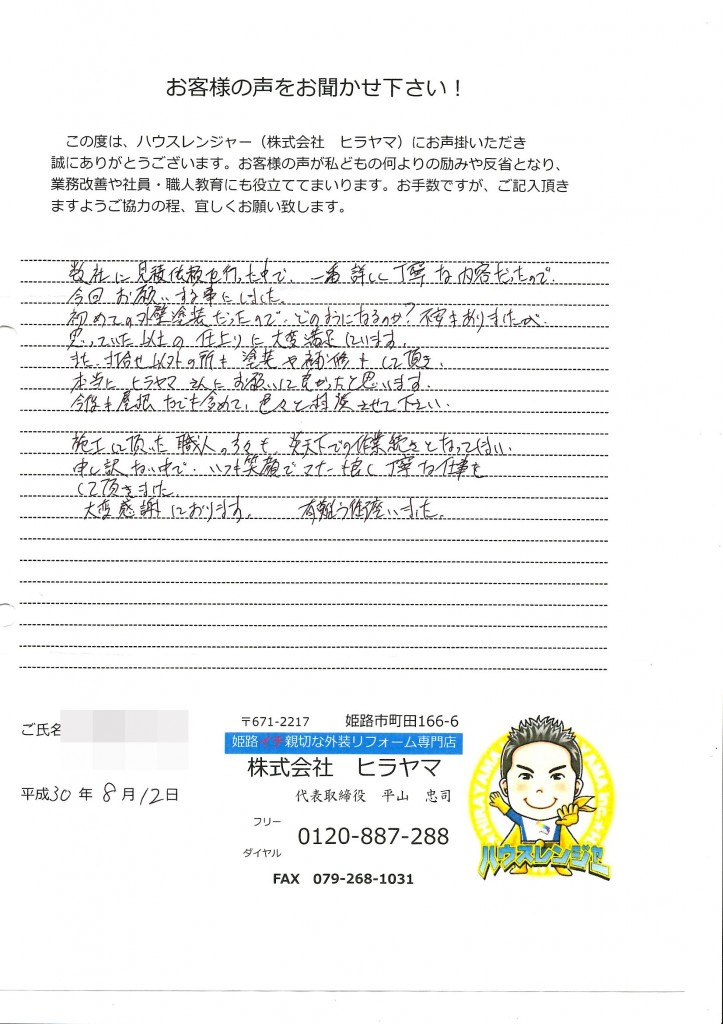 お客様の声をお聞かせ下さい！
この度は、ハウスレンジャー（株式会社　ヒラヤマ）にお声掛いただき
誠にありがとうございます。お客様の声が私どもの何よりの励みや反省となり、
業務改善や社員・職人教育にも役立ててまいります。お手数ですが、ご記入頂き
ますようご協力の程、宜しくお願い致します。
数社に見積依頼を行った中で、一番詳しく丁寧な内容だったので、
今回お願いする事にしました。
初めての外壁塗装だったので、どのようになるのか？不安もありましたが、
思っていた以上の仕上りに大変満足しています。
また、打合せ以外の所も塗装や補修もして頂き、
本当にヒラヤマさんにお願いして良かったと思います。
今後も屋根なども含めて、色々と相談させて下さい。
施工して頂いた職人の方々も、炎天下での作業続きとなってしまい
申し訳ない中で、いつも笑顔でマナーも良く丁寧な仕事を
して頂きました。
大変感謝しております。　有難う御座いました。
ご氏名
平成30年8月12日
〒671-2217　姫路市町田166-6
姫路イチ親切な外装リフォーム専門店
株式会社　ヒラヤマ
代表取締役　平山　忠司
フリー
ダイヤル
0120-887-288
FAX　079-268-1031
ハウスレンジャー